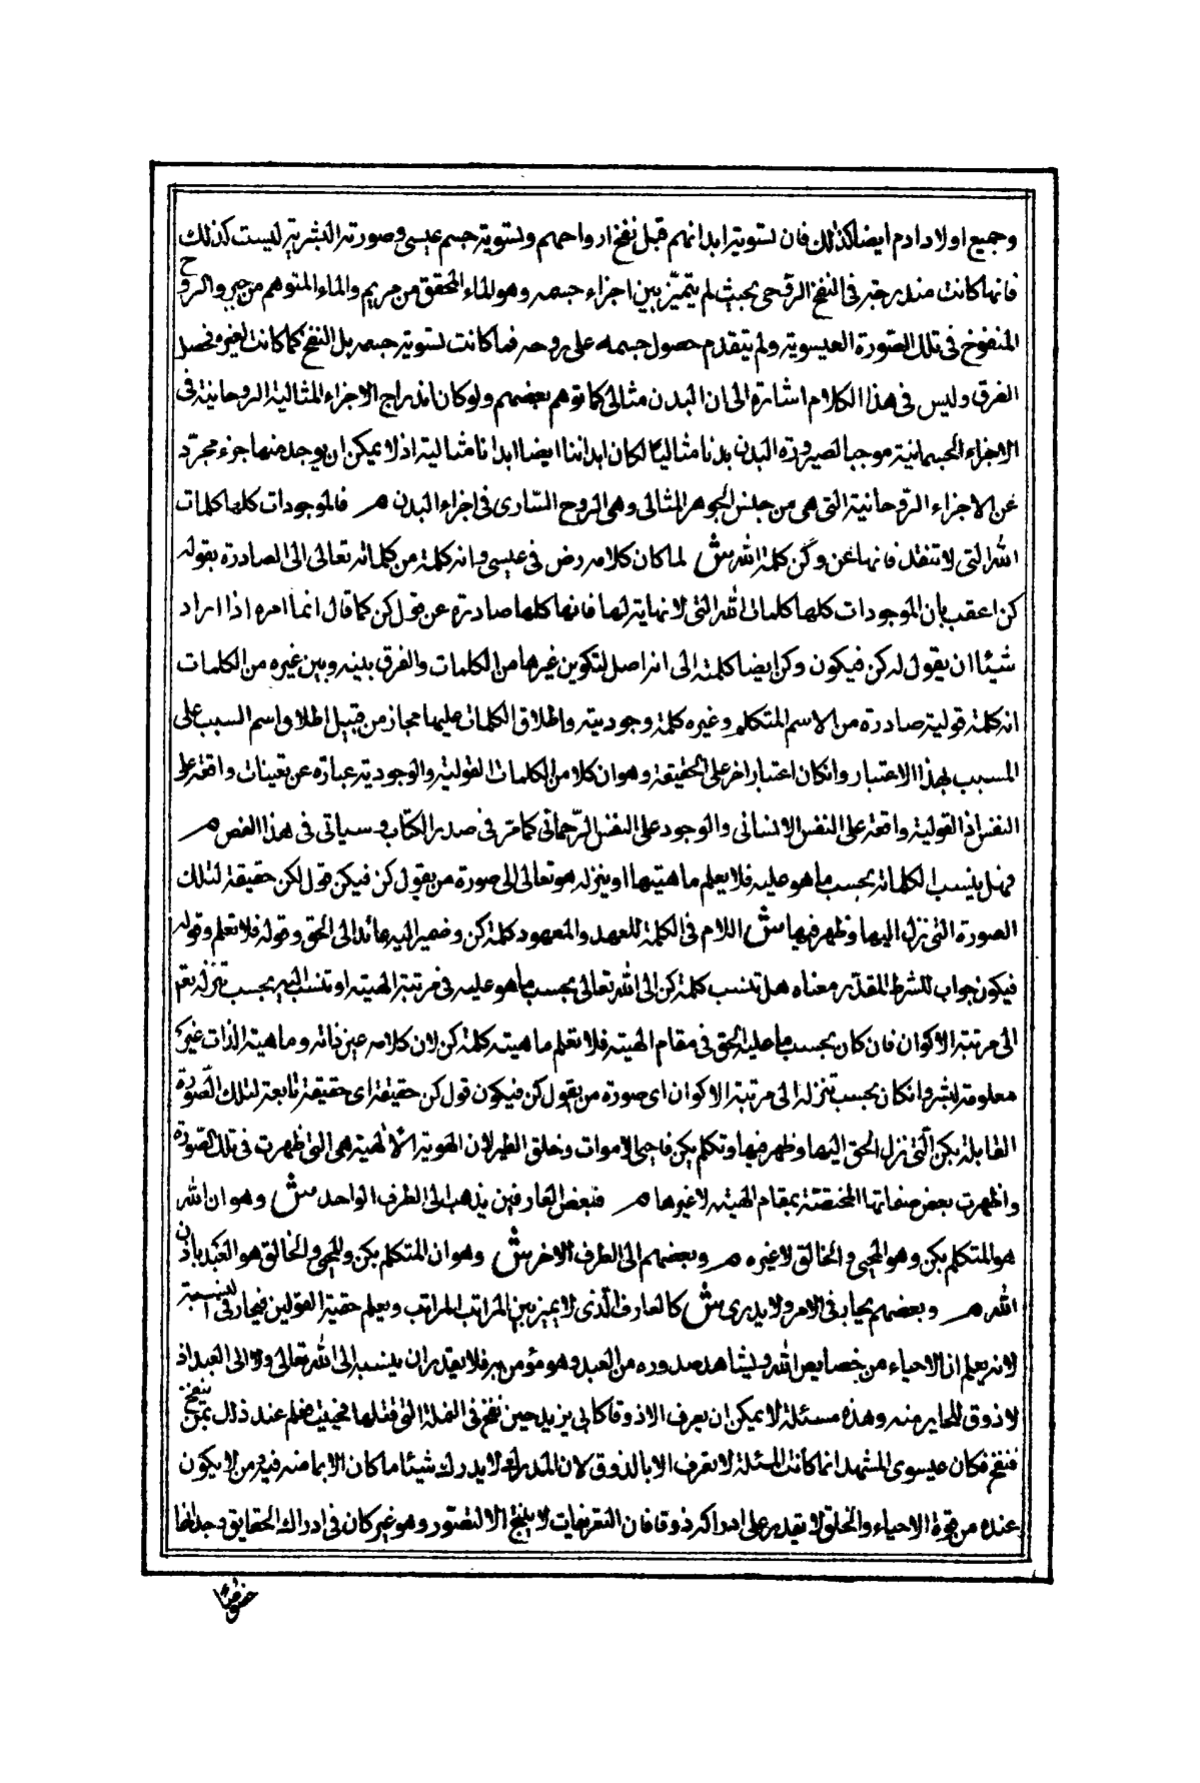 وجميع اولاد ادم ايضا كذلك فان تسوية ابدانهم قبل نفخ ارواحهم وتسوية جسم عيسى وصورته البشرية ليست كذلك
فانها كانت مندرجة فى النفخ الروحى بحيث لم يتميز بين اجزاء جسمه وهو الماء المحقق من مريم والماء المتوهم من جبرو الروح
المنفوخ فى تلك الصورة العيسوية ولم يتقدم حصول جسمه على روحه فما كانت تسوية جسمه بل النفخ كما كانت لغيره فحصل
الفرق وليس فى هذا الكلام اشارة الى ان البدن مثالى كما توهم بعضهم ولو كان اندراج الاجزاء المثالية الروحانية فى
الاجزاء الجسمانية موجبا لصيرورة البدن بدنا مثاليا لكان ابداننا ايضا ابدانا مثالية اذ لا يمكن ان يوجد منها جزء مجرد
عن الاجزاء الروحانية التى هى من جنس الجوهر المثالى وهى الروح السارى فى اجزاء البدن م فالموجودات كلها كلمات
الله التى لا تنفد فانها عن وكن كلمة الله ش لما كان كلامه رض فى عيسى وانه كلمة من كلماته تعالى الى الصادرة بقوله
كن اعقب بان الموجودات كلها كلمات الله التى لا نهاية لها فانها كلها صادرة عن قول كن كما قال انما امره اذا اراد
شيئا ان يقول له كن فيكون وكن ايضا كلمته الى انه اصل لتكوين غيرها من الكلمات والفرق بينه وبين غيره من الكلمات
انه كلمة قولية صادرة من الاسم المتكلم وغيره كلمة وجودية واطلاق الكلمات عليها مجاز من قبيل اطلاق اسم السبب على
المسبب بهذا الاعتبار وانكان اعتبار اخر على الحقيقة وهو ان كلا من الكلمات القولية والوجودية عبارة عن تعينات واقعة على
النفس اذ القولية واقعة على النفس الانسانى والوجود على النفس الرحمانى كما مر فى صدر الكتاب وسياتى فى هذا الفص م
فهل ينسب الكلمات بحسب ما هو عليه فلا يعلم ماهيتها او ينزل هو تعالى الى صورة من يقول كن فيكن قول كن حقيقة لتلك
الصورة التى نزل اليها وظهر فيها ش اللام فى الكلمة للعهد والمعهود كلمة كن وضمير اليه عائد الى الحق وقوله فلا تعلم وقوله
فيكون جواب للشرط المقدر معناه هل تنسب كلمة كن الى الله تعالى بحسب ما هو عليه فى مرتبة الهيته او تنسب اليه بحسب تنزله تعم
الى مرتبة الاكوان فان كان بحسب ما عليه الحق فى مقام الهيته فلا يعلم ماهيته كلمة كن لان كلامه عين ذاته وماهية الذات غير
معلومة لبشر وانكان بحسب تنزله الى مرتبة الاكوان اى صورة من يقول كن فيكون قول كن حقيقة اى حقيقة تابعة لتلك الصورة
القابلة بكن التى نزل الحق اليها وظهر فيها وتكلم بكن فاحيى الاموات وخلق الطير لان الهوية الالهية هى التى ظهرت فى تلك الصورة
واظهرت بعض صفاتها المختصة بمقام الهيته لا غيرها م فبعض العارفين يذهب الى الطرف الواحد ش وهو ان الله
هو المتكلم بكن وهو المحيى والخالق لا غيره م وبعضهم الى الطرف الاخر ش وهو ان المتكلم بكن والمحيى والخالق هو العبد باذن
الله م وبعضهم يحار فى الامر ولا يدرى ش كالعارف الذى لا يميز بين المراتب المراتب ويعلم حقية القولين فيحار فى النسبة
لانه يعلم ان الاحياء من خصايص الله ويشاهد صدوره من العبد وهو مؤمن به فلا يقدر ان ينسبه الى الله تعالى ولا الى العبد اذ
لا ذوق للحاير منه وهذه مسئلة لا يمكن ان يعرف الا ذوقا كابى يزيد حين نفخ فى النملة التى قتلها فحييت فعلم عند ذلك بمن ينفخ
فنفخ فكان عيسوى المشهد انما كانت المسئلة لا تعرف الا بالذوق لان المدرك لا يدرك شيئا ما كان الا بما منه فيه فمن لا يكون
عنده من قوة الاحياء والخلق لا يقدر على ادراكه ذوقا فان التعريفات لا ينتج الا التصور وهو غير كان فى ادراك الحقايق وجدانها